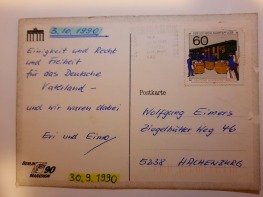 3.10.1990
Einigkeit und Recht
und Freiheit
für das Deutsche
Vaterland –
und wir waren dabei
Evi und Eimo
BERLIN 90
MARATHON
30.9.1990
60
Postkarte
Wolfgang Eimers
Ziegelhütter Weg 46
5238 HACHENBURG